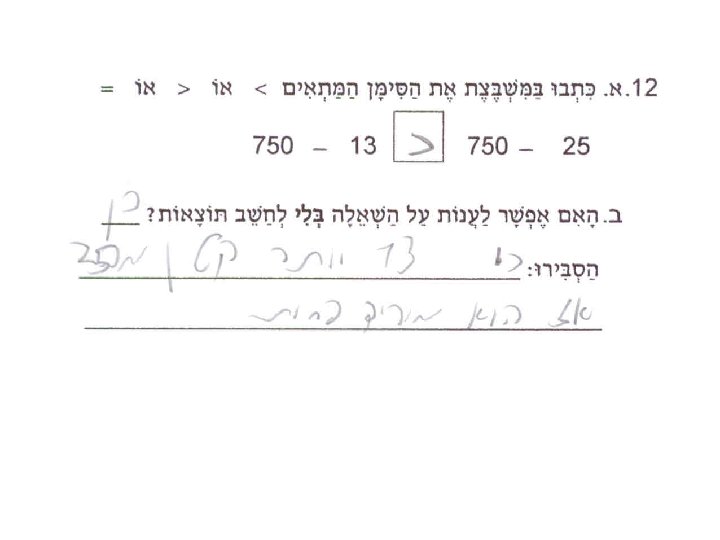 12.א. כִּתְבוּ בַּמִּשְׁבֶּצֶת אֶת הַסִּימָּן הַמַּתְאִים > אוֹ < אוֹ =
750 – 13 > 750 – 25
ב. הַאִם אֶפְשָׁר לַעֲנוֹת עַל הַשְּׁאֵלָה בְּלִי לְחַשֵּׁב תּוֹצָאוֹת? כן
הַסְבִּירוּ: כי 13 יותר קטן מ25
אז הוא מוריד פחות